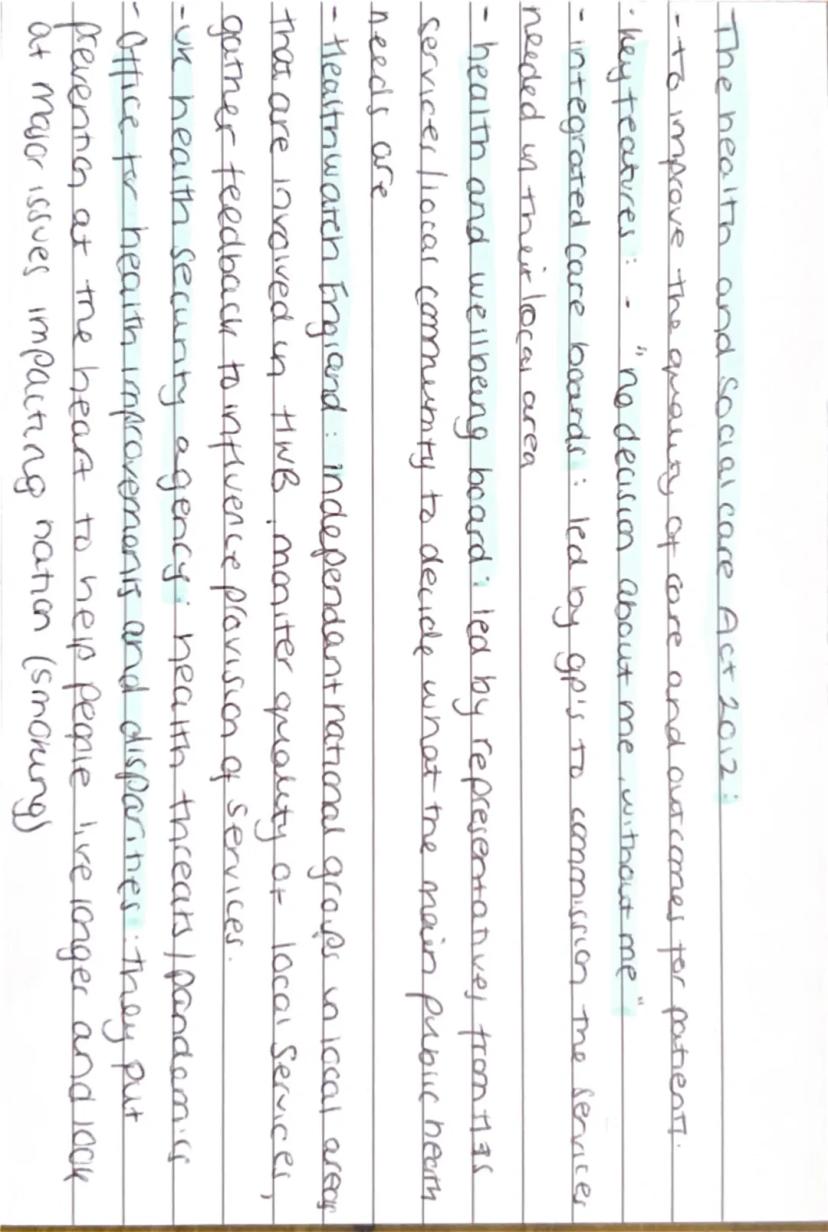 The health and social care Act 2012:
- to improve the quality of care and outcomes for patients.
· key features: - "no decision about me, without me"
- integrated care boards: led by gp's to commission the services
needed in their local area
- health and wellbeing board: led by representatives from H&S
services/local community to decide what the main public health
needs are
- Healthwatch England: independant national groups in local areas
that are involved in HWB, moniter quality of local services,
gather feedback to influence provision of services.
- UK health security agency: health threats/pandemics
- Office for health improvements and disparities: they put
prevention at the heart to help people live longer and look
at major issues impacting nation (smoking)